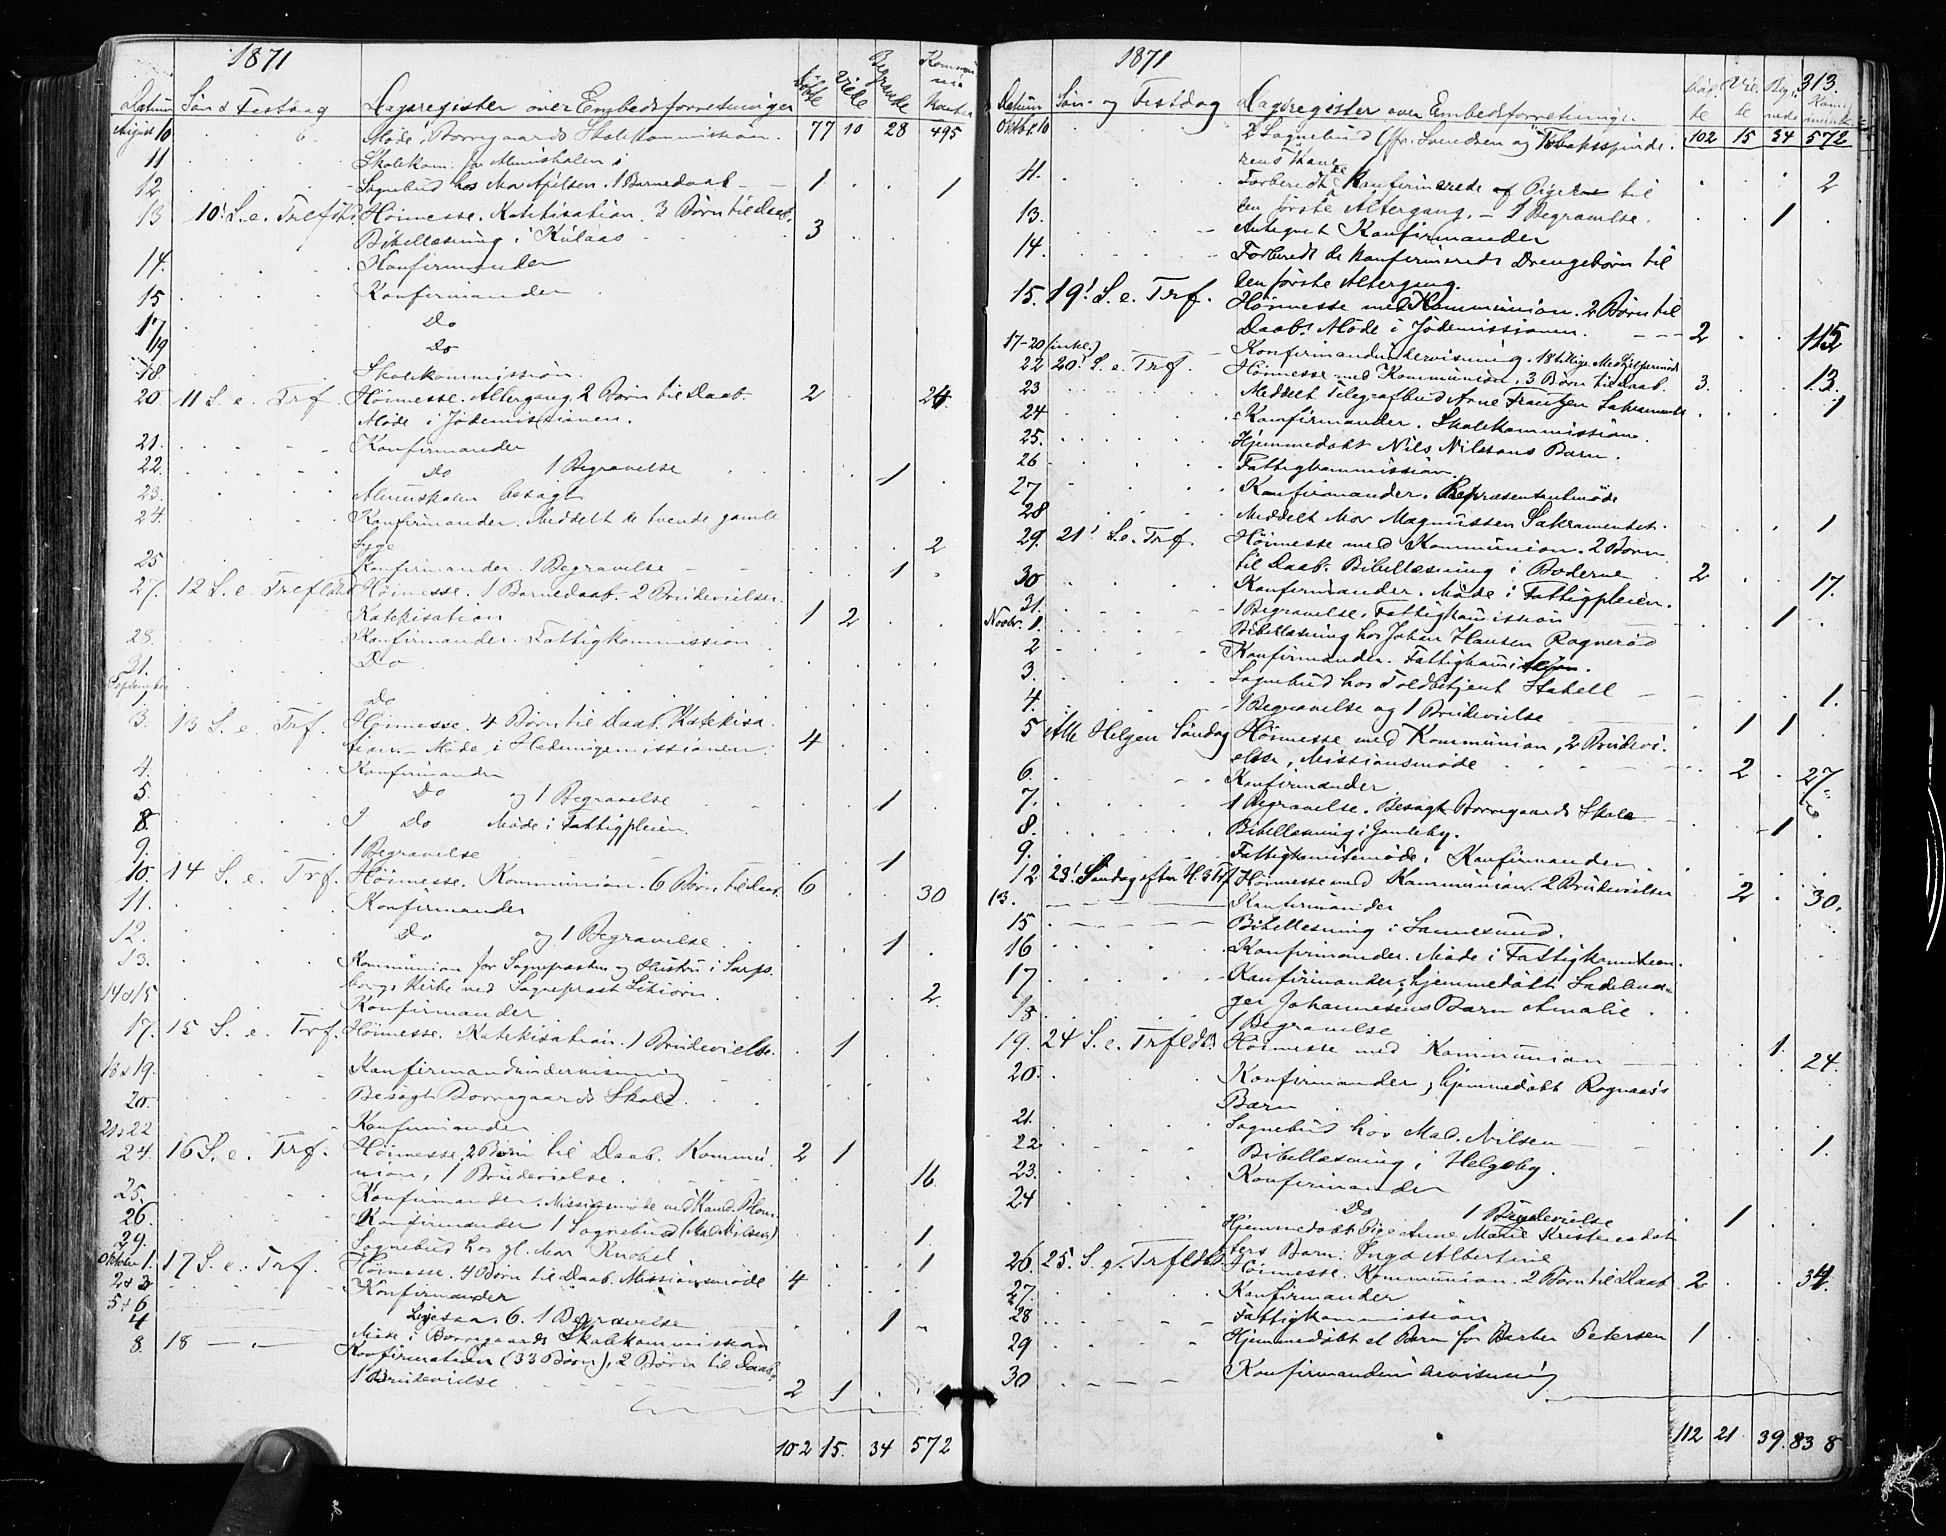 1871
Datum Søn & Festdag Dagsregister over Embedsforretninger Døbte Viede Begravede Kommunikanter
August 10 Møde i Borregaards Skolekommission. 77 10 28 495
11 Skolekom. for Almuskolen i
12 Sognebud hos Mor Apelsen. 1 Barnedaab 1 1
13 10! S. e. Trefold. Høimesse. Katekisation. 3 Børn til Daab. 3
Bibellæsning i Kulaas
14. Konfirmander
15 Konfirmander
17 Do
19 Do
18. Skolekommission.
20 11 S. e. Trf. Høimesse. Altergang. 2 Børn til Daab. 2 24
Møde i Jødemissionen.
21. Konfirmander
22. Do 1 Begravelse 1
23. Almuskolen besøgt
24. Konfirmander. Meddelt de tvende gamle
Syge 2
25 Konfirmander. 1 Begravelse 1
27. 12 S. e. Trefold. Høimesse. 1 Barnedaab. 2 Brudevielser.
Katekisation 1 2
28. Konfirmander. Fattigkommission
31. Do
Do
3. 13 S. e. Trf. Høimesse. 4 Børn til Daab. Katekisa
tion. Møde i Hedningemissionen. 4
4. Konfirmander
5. Do og 1 Begravelse 1
8. Do Møde i Fattigpleien.
9. 1 Begravelse 1
10. 14 S. e. Trf. Høimesse. Kommunion. 6 Børn til Daab. 6 30
11. Konfirmander
12. Do og 1 Begravelse. 1
13. Kommunion for Sognepræsten og Hustru i Sarps
borgs Kirke ved Sogneprest 2
14&15 Konfirmander
17. 15 S. e. Trf. Høimesse. Katekisation. 1 Brudevielse. 1
18&19. Konfirmandundervisning
20. Besøgt Borregaards Skole.
21&22 Konfirmander
24. 16 S. e. Trf. Høimesse, 2 Børn til Daab. Kommu 2 1
nion, 1 Brudevielse. 16
25. Konfirmander. Missionsmøde ved Kand. Blom.
26. Konfirmander 1 Sognebud (Mad. Nilsen) 1
29. Sognebud hos gl. Mor Knobel 1
Oktober 1. 17 S. e. Trf. Høimesse. 4 Børn til Daab. Missionsmøde 4
2&3 Konfirmander
5&6 Ligesaa. 6. 1 Begravelse 1
4 Møde i Borregaards Skolekommission
8. 18 — " — Konfirmation (33 Børn), 2 Børn til Daab,
1 Brudevielse 2 1
102 15. 34 572
1871 313.
Datum Søn- og Festdag Dagsregister over Embedsforretninger
Oktbr. 10 2 Sognebud (fr. Svendsen og Tobaksspinde. 102 15 34 572
rens Kone 2
11. Forberedt de Konfirmerede Piger til
den første Altergang. – 1 Begravelse. 1
13. Antegnet Konfirmander
14. Forberedt de konfirmerede Drengebørn til
den første Altergang.
15. 19! S. e. Trf. Høimesse med Kommunion. 2 Børn til
Daab. Møde i Jødemissionen. 2 115
17-20 (inkl.) Konfirmandundervisning. 18 tillige Medhjelpermøde
22 20! S. e. Trf. Høimesse med Kommunion, 3 Børn til Daab. 3. 13.
23 Meddelt Telegrafbud Arne Frantzen Sakramentet 1
24 Konfirmander. Skolekommission.
25. Hjemmedøbt Nils Nilssons Barn.
26 Fattigkommission
27 Konfirmander. Repræsentantmøde
28 Meddelt Mor Magnussen Sakramentet. 1
29. 21! S. e. Trf. Høimesse med Kommunion. 2 Børn
til Daab. Bibellæsning i Boderne 2 17.
30 Konfirmander. Møde i Fattigpleien.
31. 1 Begravelse, Fattigkommission 1
Novbr. 1. Bibellæsning hos Johan Hansen Rognerød
2 Konfirmander. Fattigkommission.
3. Sognebud hos Toldbetjent Stabell 1.
4. 1 Begravelse og 1 Brudevielse 1 1
5 Alle Helgen Søndag Høimesse med Kommunion, 2 Brudevi
else, Missionsmøde 2 27
6. Konfirmander
7. 1 Begravelse. Besøgt Borregaards Skole 1
8. Bibellæsning i Gamleby.
9. Fattigkommissionsmøde, Konfirmander
12 23! Søndag efter H. 3 Trf Høimesse med Kommunion. 2 Brudevielser 2 30.
13. Konfirmander
15 Bibellæsning i Sannesund.
16 Konfirmander. Møde i Fattigkommissionen.
17 Konfirmander; hjemmedøbt
18 Johannesens Barn Amalie.
1 Begravelse 1.
19. 24 S. e. Trfldh. Høimesse med Kommunion 24.
20. Konfirmander; hjemmedøbt Rognaas's
Barn
21. Sognebud hos Mad. Nilsen 1.
22 Bibellæsning i Helgeby.
23. Konfirmander
24 Do 1 Brudevielse 1
Hjemmedøbt Pige Anne Marie Kristensdat
ters Barn: Inga Albertine
26. 25. S. e. Trfldh. Høimesse. Kommunion. 2 Børn til Daab 2 34.
27. Konfirmander
28 Fattigkommission
29 Hjemmedøbt et Barn for Barber Petersen 1
30 Konfirmandundervisning
112 21 39. 838